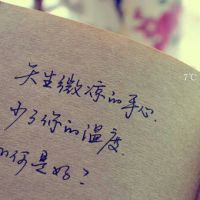 天生微凉的手心.
7℃
少了你的温度.
如何是好？